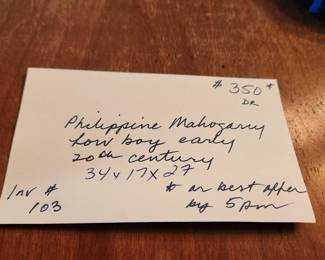 $ 350 *
DR
Philippine Mahogany
Low boy early
20th century
34 x 17 x 27
Inv #
103
* or best offer
by 5pm